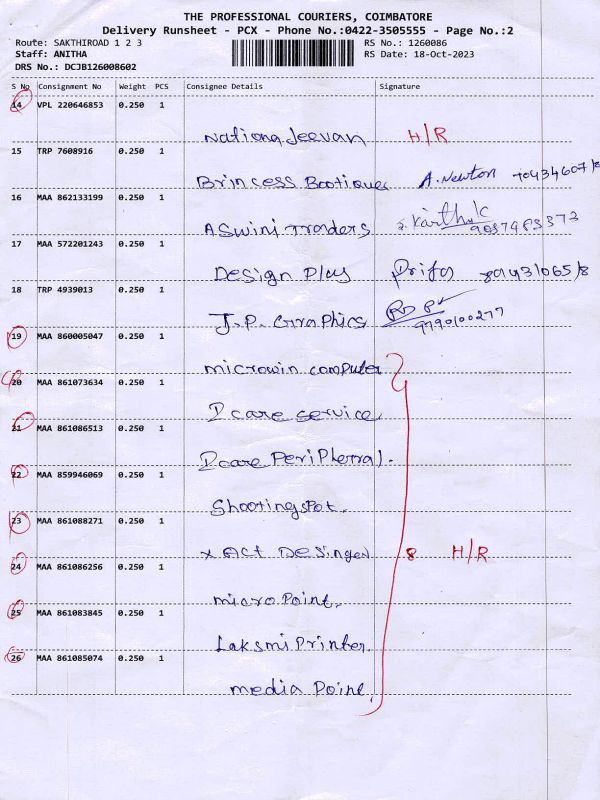 THE PROFESSIONAL COURIERS, COIMBATORE
Delivery Runsheet - PCX - Phone No.:0422-3505555 - Page No.:2
Route: SAKTHIROAD 1 2 3 RS No.: 1260086
Staff: ANITHA RS Date: 18-Oct-2023
DRS No.: DCJB126008602
S No Consignment No Weight PCS Consignee Details Signature
14 VPL 220646853 0.250 1
Nationa Jeevan H/R
15 TRP 7608916 0.250 1
Brincess Bootiques A. Newton
16 MAA 862133199 0.250 1
ASwini Traders
17 MAA 572201243 0.250 1
Design Play Priya
18 TRP 4939013 0.250 1
J.P. Graphics 9790100277
19 MAA 860005047 0.250 1
microwin computer
20 MAA 861073634 0.250 1
Dcare service
21 MAA 861086513 0.250 1
Dcare Peripherral.
22 MAA 859946069 0.250 1
Shootingspot.
23 MAA 861088271 0.250 1
x Act Desinger 8 H/R
24 MAA 861086256 0.250 1
micro Point.
25 MAA 861083845 0.250 1
Laksmi Printer.
26 MAA 861085074 0.250 1
media Point.